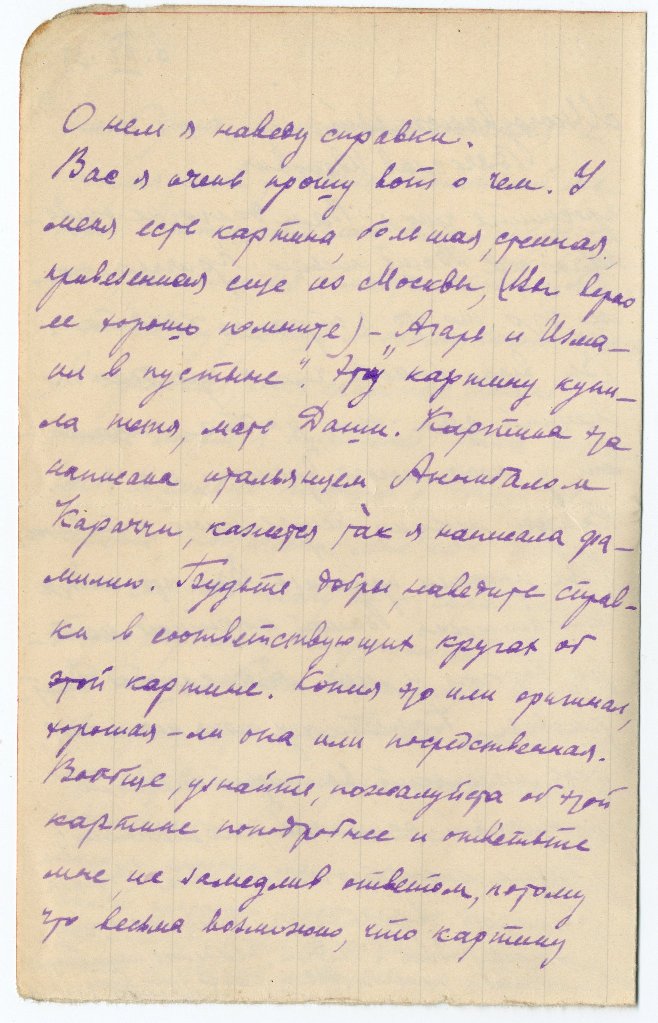 О нем я наведу справки.
Вас я очень прошу вот о чем. У
меня есть картина, большая, стенная,
привезенная еще из Москвы, (Вы верно
ее хорошо помните) – „Агарь и Изма–
ил в пустыне". Эту картину купи–
ла тетя, мать Даши. Картина эта
написана итальянцем Аннибалом
Караччи, кажется так я написала фа–
милию. Будьте добры, наведите справ–
ки в соответствующих кругах об
этой картине. Копия это или оригинал,
хорошая – ли она или посредственная.
Вообще, узнайте, пожалуйста об этой
картине поподробнее и ответьте
мне, не замедлив ответом, потому
что весьма возможно, что картину